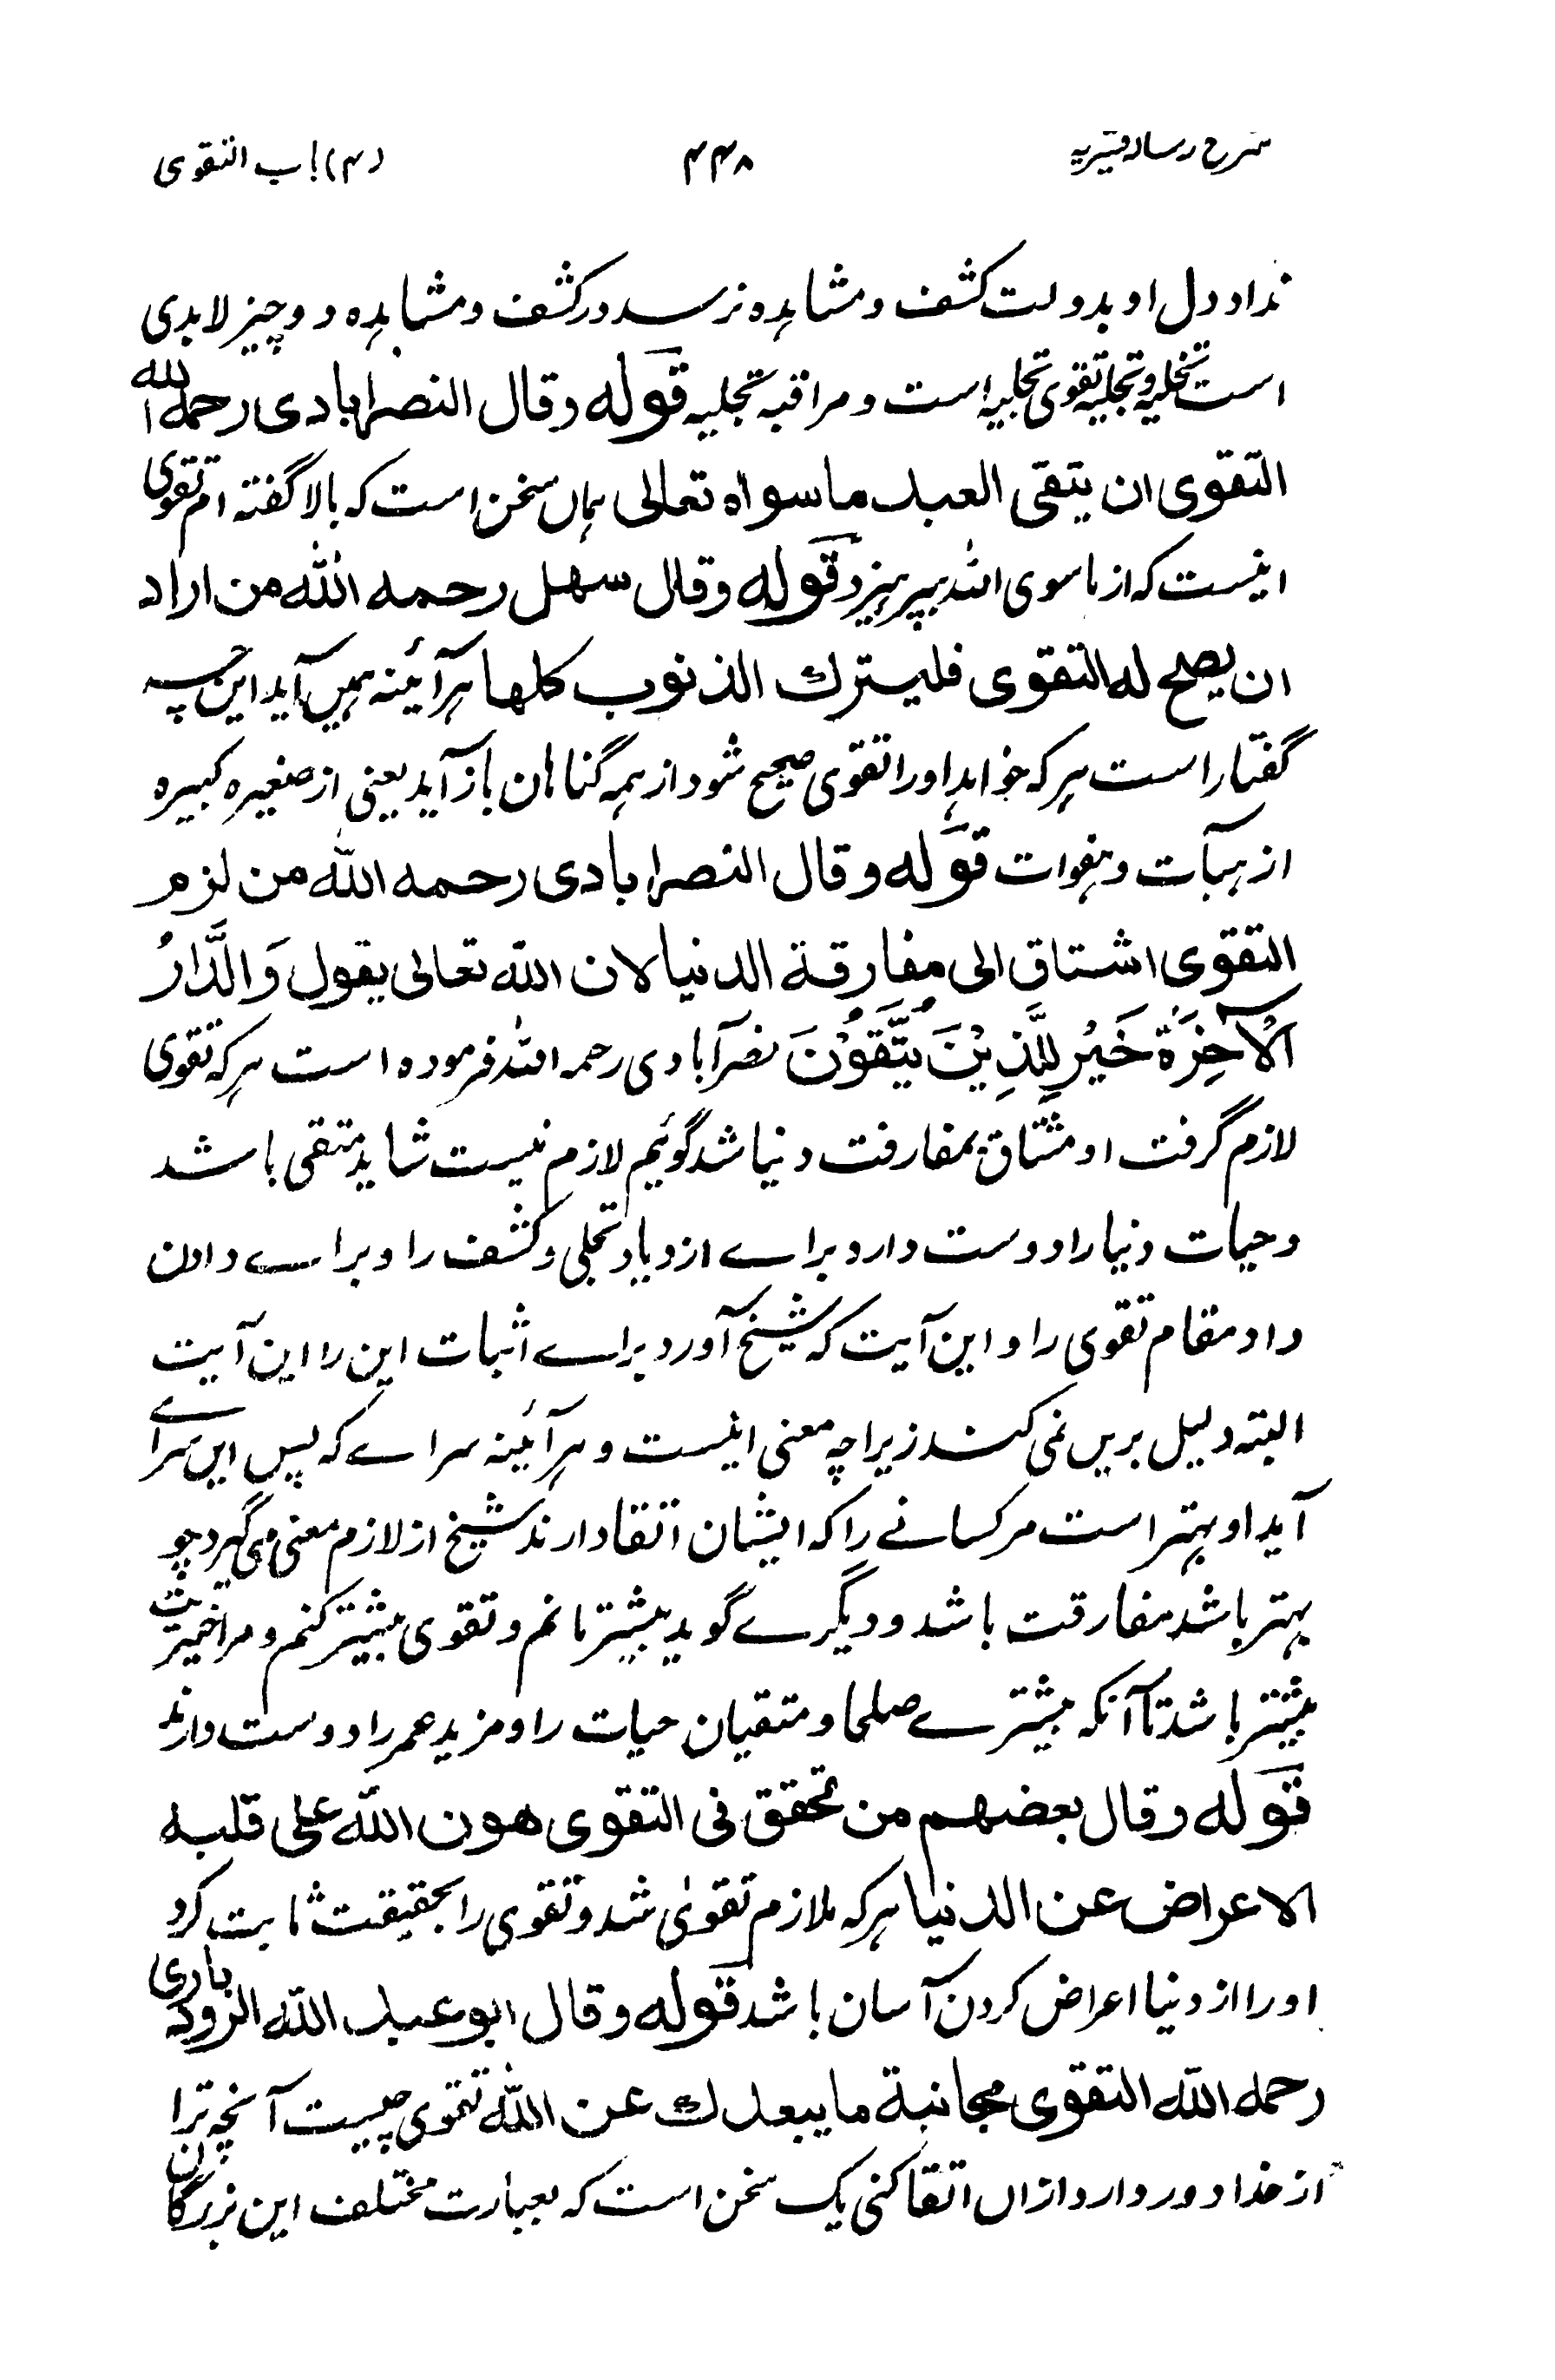 شرح رساله قشیریه ۴۴۸ (۴) باب التقوی
نداد دل او بدولت کشف و مشاهده نرسد در کشف و مشاهده دو چیز لابدی
است تخلیه و تجلیه تقوی تخلیه است و مراقبه تجلیه قوله وقال النصرابادی رحمه الله
التقوی ان یتقی العبد ما سواه تعالی همان سخن است که بالا گفته ام تقوی
اینست که از ماسوی الله بپرهیزد قوله وقال سهل رحمه الله من اراد
ان یصح له التقوی فلیترك الذنوب کلها هر آئینه همیں آید این چه
گفتار است هر که خواهد اورا تقوی صحیح شود از همه گناهان باز آید یعنی از صغیره کبیره
از هیآت و هفوات قوله وقال النصرابادی رحمه الله من لزم
التقوی اشتاق الی مفارقة الدنیا لان الله تعالی یقول وَالدَّارُ
الْآخِرَةُ خَيْرٌ لِلَّذِيْنَ يَتَّقُوْنَ نصرآبادی رحمه الله فرموده است هر که تقوی
لازم گرفت او مشتاق بمفارقت دنیا شد گوئیم لازم نیست شاید متقی باشد
و حیات دنیا را دوست دارد براے ازدیاد تجلی و کشف را و براے دادن
داد مقام تقوی را و این آیت که شیخ آورد براے اثبات این را این آیت
البته دلیل بریں نمی کند زیراچه معنی اینست و هر آئینه سراے که پس این سراے
آید او بهتر است مر کسانے را که ایشان اتقا دارند شیخ از لازم معنی می گیرد چو
بهتر باشد مفارقت باشد و دیگرے گوید بیشتر مانم و تقوی بیشتر کنم و مرا خیریت
بیشتر باشد تا آنکه بیشترے صلحا و متقیان حیات را و مزید عمر را دوست دارند
قوله وقال بعضهم من تحقق فی التقوی هون الله علی قلبه
الاعراض عن الدنیا هر که ملازم تقویٰ شد و تقوی را بحقیقت ثابت کرد
اورا از دنیا اعراض کردن آسان باشد قوله وقال ابو عبد الله الرودباری
رحمه الله التقوی مجانبة ما یبعدك عن الله تقوی چیست آنچه ترا
از خدا دور دارد ازاں اتقا کنی یک سخن است که بعبارت مختلف این بزرگان